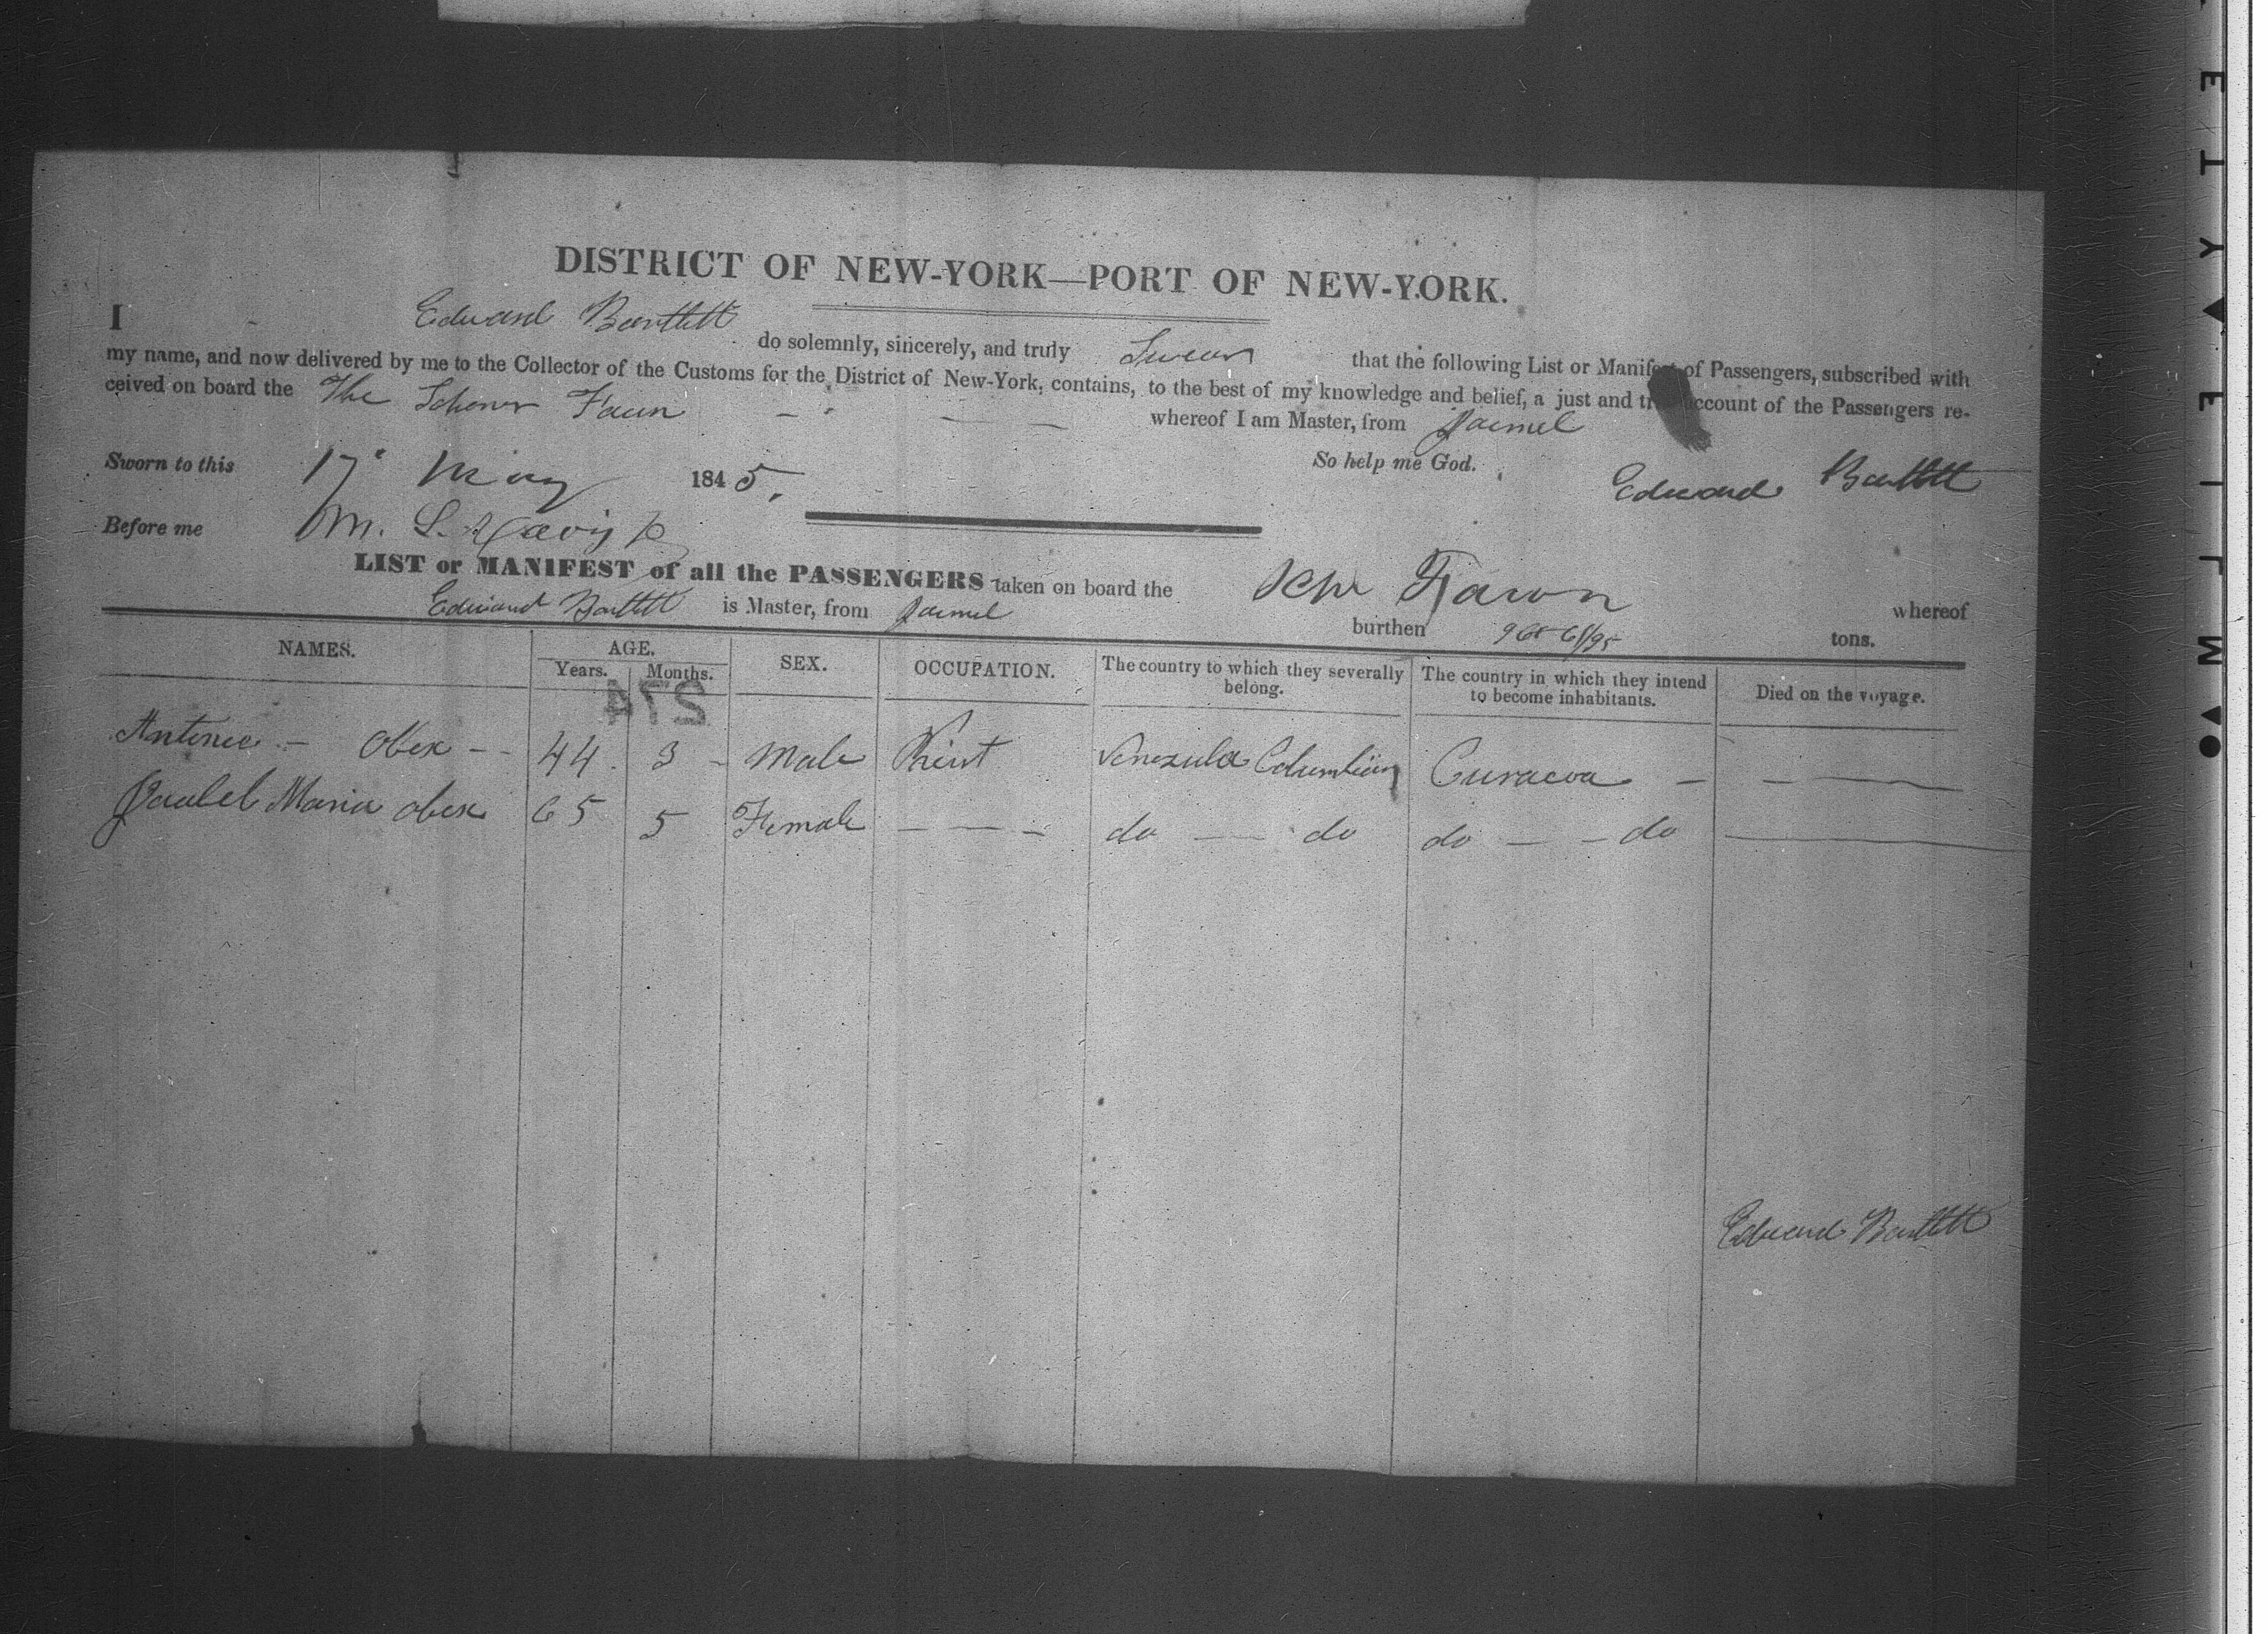 DISTRICT OF NEW-YORK—PORT OF NEW-YORK.
I Edward Bartlett do solemnly, sincerely, and truly Swear that the following List or Manifest of Passengers, subscribed with
my name, and now delivered by me to the Collector of the Customs for the District of New-York, contains, to the best of my knowledge and belief, a just and true account of the Passengers re-
ceived on board the The Schoner Faun whereof I am Master, from Jacmel
So help me God.
Sworn to this 17 May 1845. Edward Bartlett
Before me M. L. Davis
LIST or MANIFEST of all the PASSENGERS taken on board the Schr Fawn whereof
Edward Bartlett is Master, from Jacmel burthen tons.
NAMES. AGE. Years. Months. SEX. OCCUPATION. The country to which they severally belong. The country in which they intend to become inhabitants. Died on the voyage.
274
Antonio - Obex -- 44. 3 - Male Priest Venezula Columbian Curacoa - - —
Isabel Maria obex 65 5 Female - - - do — do do — - do —
Edward Bartlett